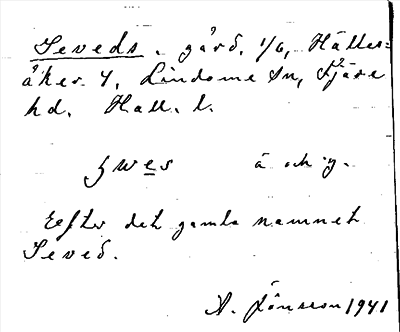 Seveds. gård, 1/6, Hälles=
åker 4, Lindome sn, Fjäre
hd. Hall. l.
swes å och y.
Efter det gamla namnet
Seved.
A. Jönsson 1941